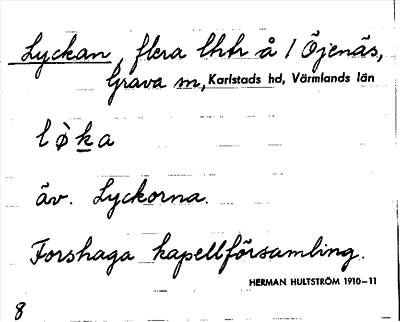 Lyckan, flera lhtr å 1 Öjenäs,
Grava sn, Karlstads hd, Värmlands län
lø̀ka
äv. Lyckorna.
Forshaga kapellförsamling.
HERMAN HULTSTRÖM 1910–11
8